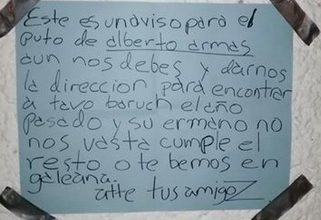 Este es unaviso para el
puto de alberto armas
aun nos debes y darnos
la direccion para encontrar
a tavo baruch el año
pasado y su ermano no
nos vasta cumple el
resto o te bemos en
galeana.
atte tus amigoz